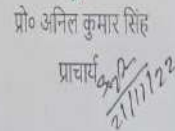 प्रो० अनिल कुमार सिंह
प्राचार्य
21/11/22